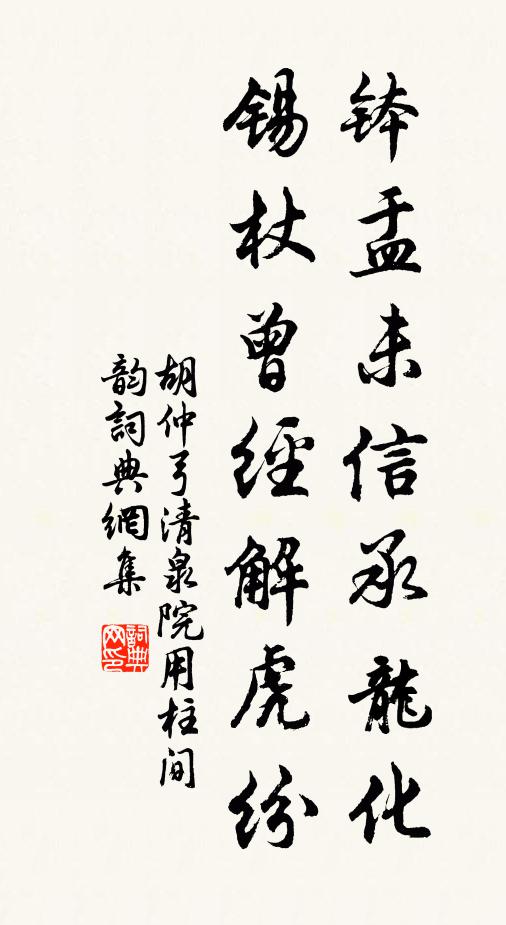 钵盂未信承龍化
锡杖曾經解虎纷
胡仲弓清泉院用柱间
韵詞典網集
詞典网印